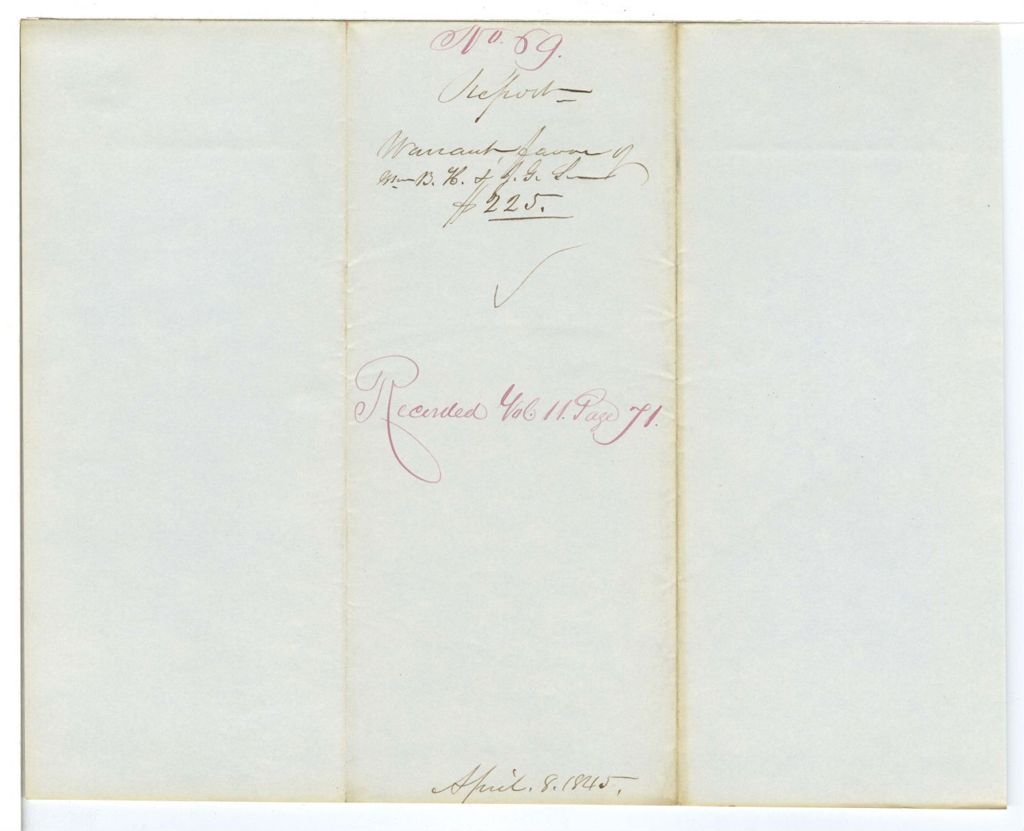 No. 69.
Report
Warrant, favor of
Wm B. H. & J. G.
$225.
Recorded Vol. 11. Page 71.
April. 8. 1845.